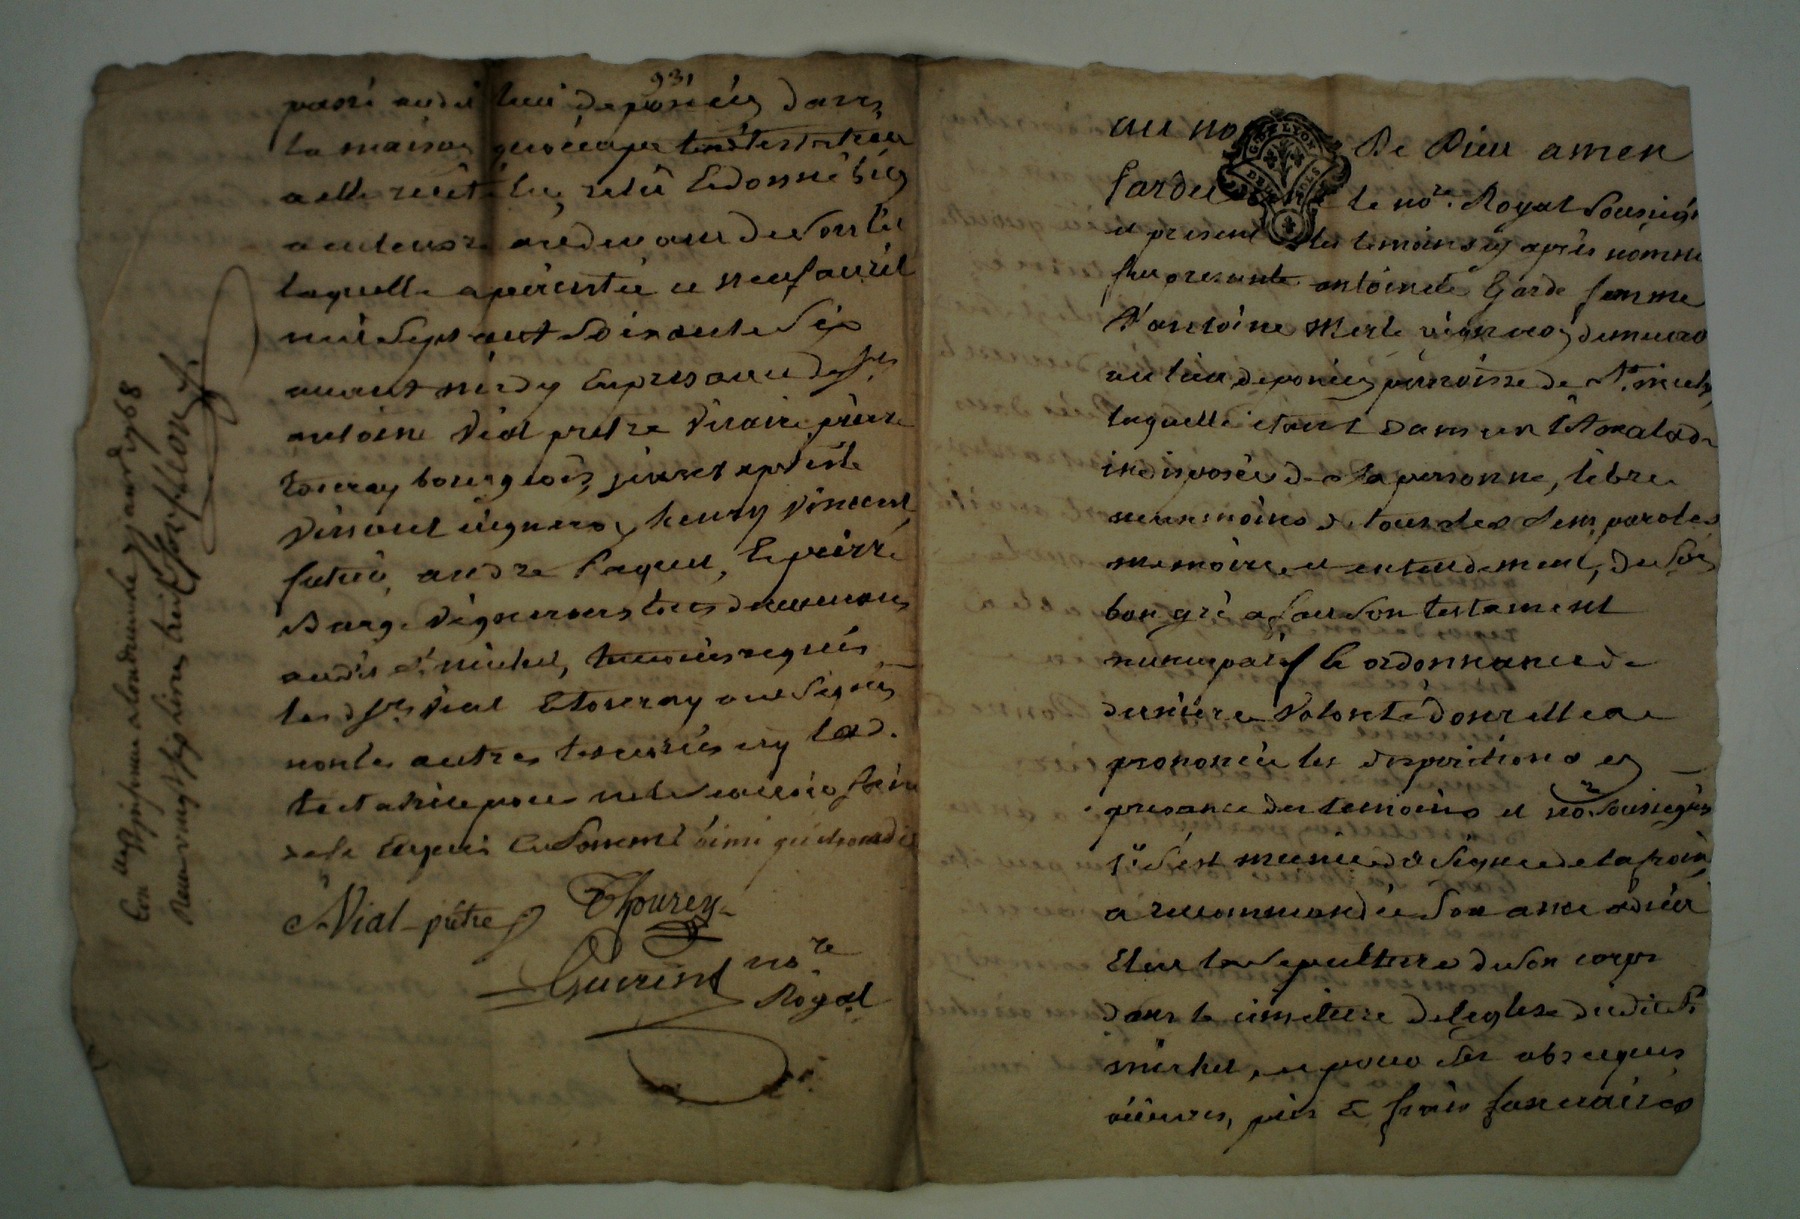 931
passé audit lieu de poncins dans
la maison qu'occupe
a elle récité leu, relu & donné bien
a entendre au devant de son lit
laquelle a persistée ce neuf avril
mil sept cent soixante six
avant midy En presance de srs
antoine Vial pretre Vicaire, pierre
toueray bourgeois, jean baptiste
Vincent vigneron, henry Vincent
andre Paquet, & pierre
Barge Vignerons tous demeurans
audit st michel, temoins requis
les d srs Vial & toueray ont signés
non les autres temoins ny lad.
testatrice pour ne le scavoir faire
de ce Enquis & sommé ainsi qu'elle ont dit
Vial prêtre Thourey
Guerin nore
Royal
Con
neuf vingt six livres huit
au nom De Dieu amen
Pardevant le nore. Royal Sousigné
et presents les temoins cy après nommé
fut presente antoinete Garde femme
d'antoine Merle vigneron demeurant
au lieu de poncins parroisse de St. michel,
laquelle etant dans un lit malade
indisposée de sa personne, libre
neanmoins de tous ses sens, paroles
memoire et entendement, de son
bon gré a fait son testament
nuncupatif & ordonnance de
derniere Volonté dont elle a
prononcée les dispositions en
presance des temoins et nore. sousignés
s'est munie du signe de la Croix
a recommandée son ame a dieu
Elut la sepulture de son corps
dans le cimetiere de l'eglise dudit St
michel, et pour ses obseques
œuvres, pies & frais funeraires